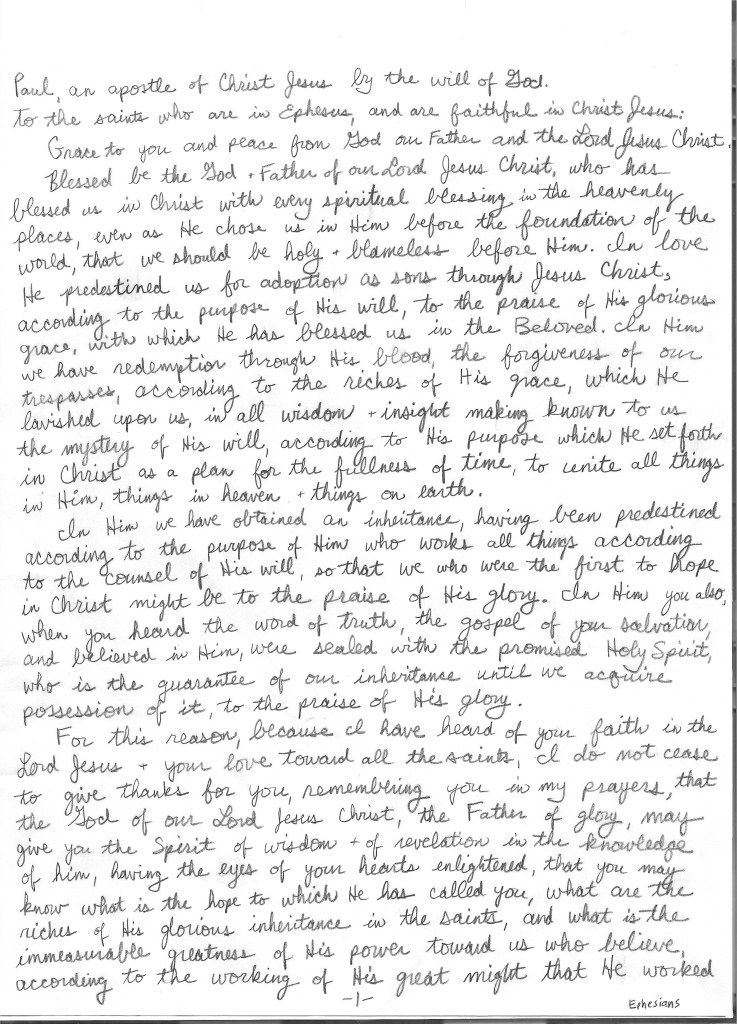 Paul, an apostle of Christ Jesus by the will of God.
To the saints who are in Ephesus, and are faithful in Christ Jesus:
Grace to you and peace from God our Father and the Lord Jesus Christ.
Blessed be the God + Father of our Lord Jesus Christ, who has
blessed us in Christ with every spiritual blessing in the heavenly
places, even as He chose us in Him before the foundation of the
world, that we should be holy + blameless before Him. In love
He predestined us for adoption as sons through Jesus Christ,
according to the purpose of His will, to the praise of His glorious
grace, with which He has blessed us in the Beloved. In Him
we have redemption through His blood, the forgiveness of our
trespasses, according to the riches of His grace, which He
lavished upon us, in all wisdom + insight making known to us
the mystery of His will, according to His purpose which He set forth
in Christ as a plan for the fullness of time, to unite all things
in Him, things in heaven + things on earth.
In Him we have obtained an inheritance, having been predestined
according to the purpose of Him who works all things according
to the counsel of His will, so that we who were the first to hope
in Christ might be to the praise of His glory. In Him you also,
when you heard the word of truth, the gospel of your salvation,
and believed in Him, were sealed with the promised Holy Spirit,
who is the guarantee of our inheritance until we acquire
possession of it, to the praise of His glory.
For this reason, because I have heard of your faith in the
Lord Jesus + your love toward all the saints, I do not cease
to give thanks for you, remembering you in my prayers, that
the God of our Lord Jesus Christ, the Father of glory, may
give you the Spirit of wisdom + of revelation in the knowledge
of him, having the eyes of your hearts enlightened, that you may
know what is the hope to which He has called you, what are the
riches of His glorious inheritance in the saints, and what is the
immeasurable greatness of His power toward us who believe,
according to the working of His great might that He worked
-1-
Ephesians